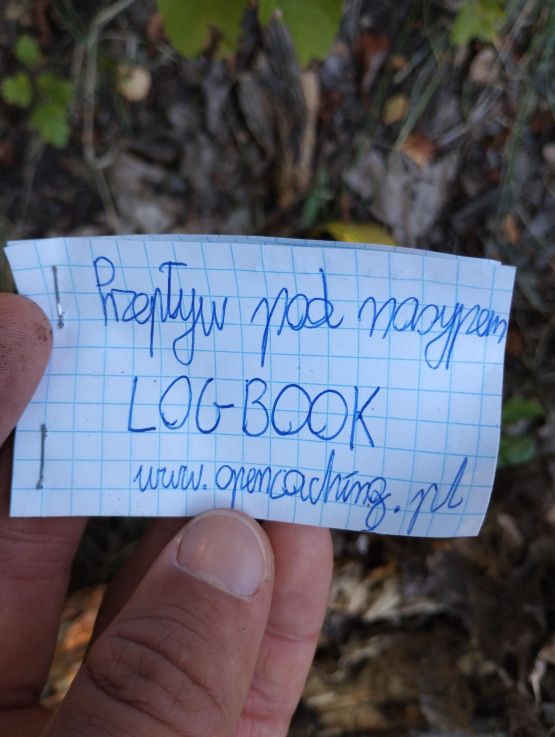 Przepływ pod nasypem
LOG-BOOK
www.opencaching.pl